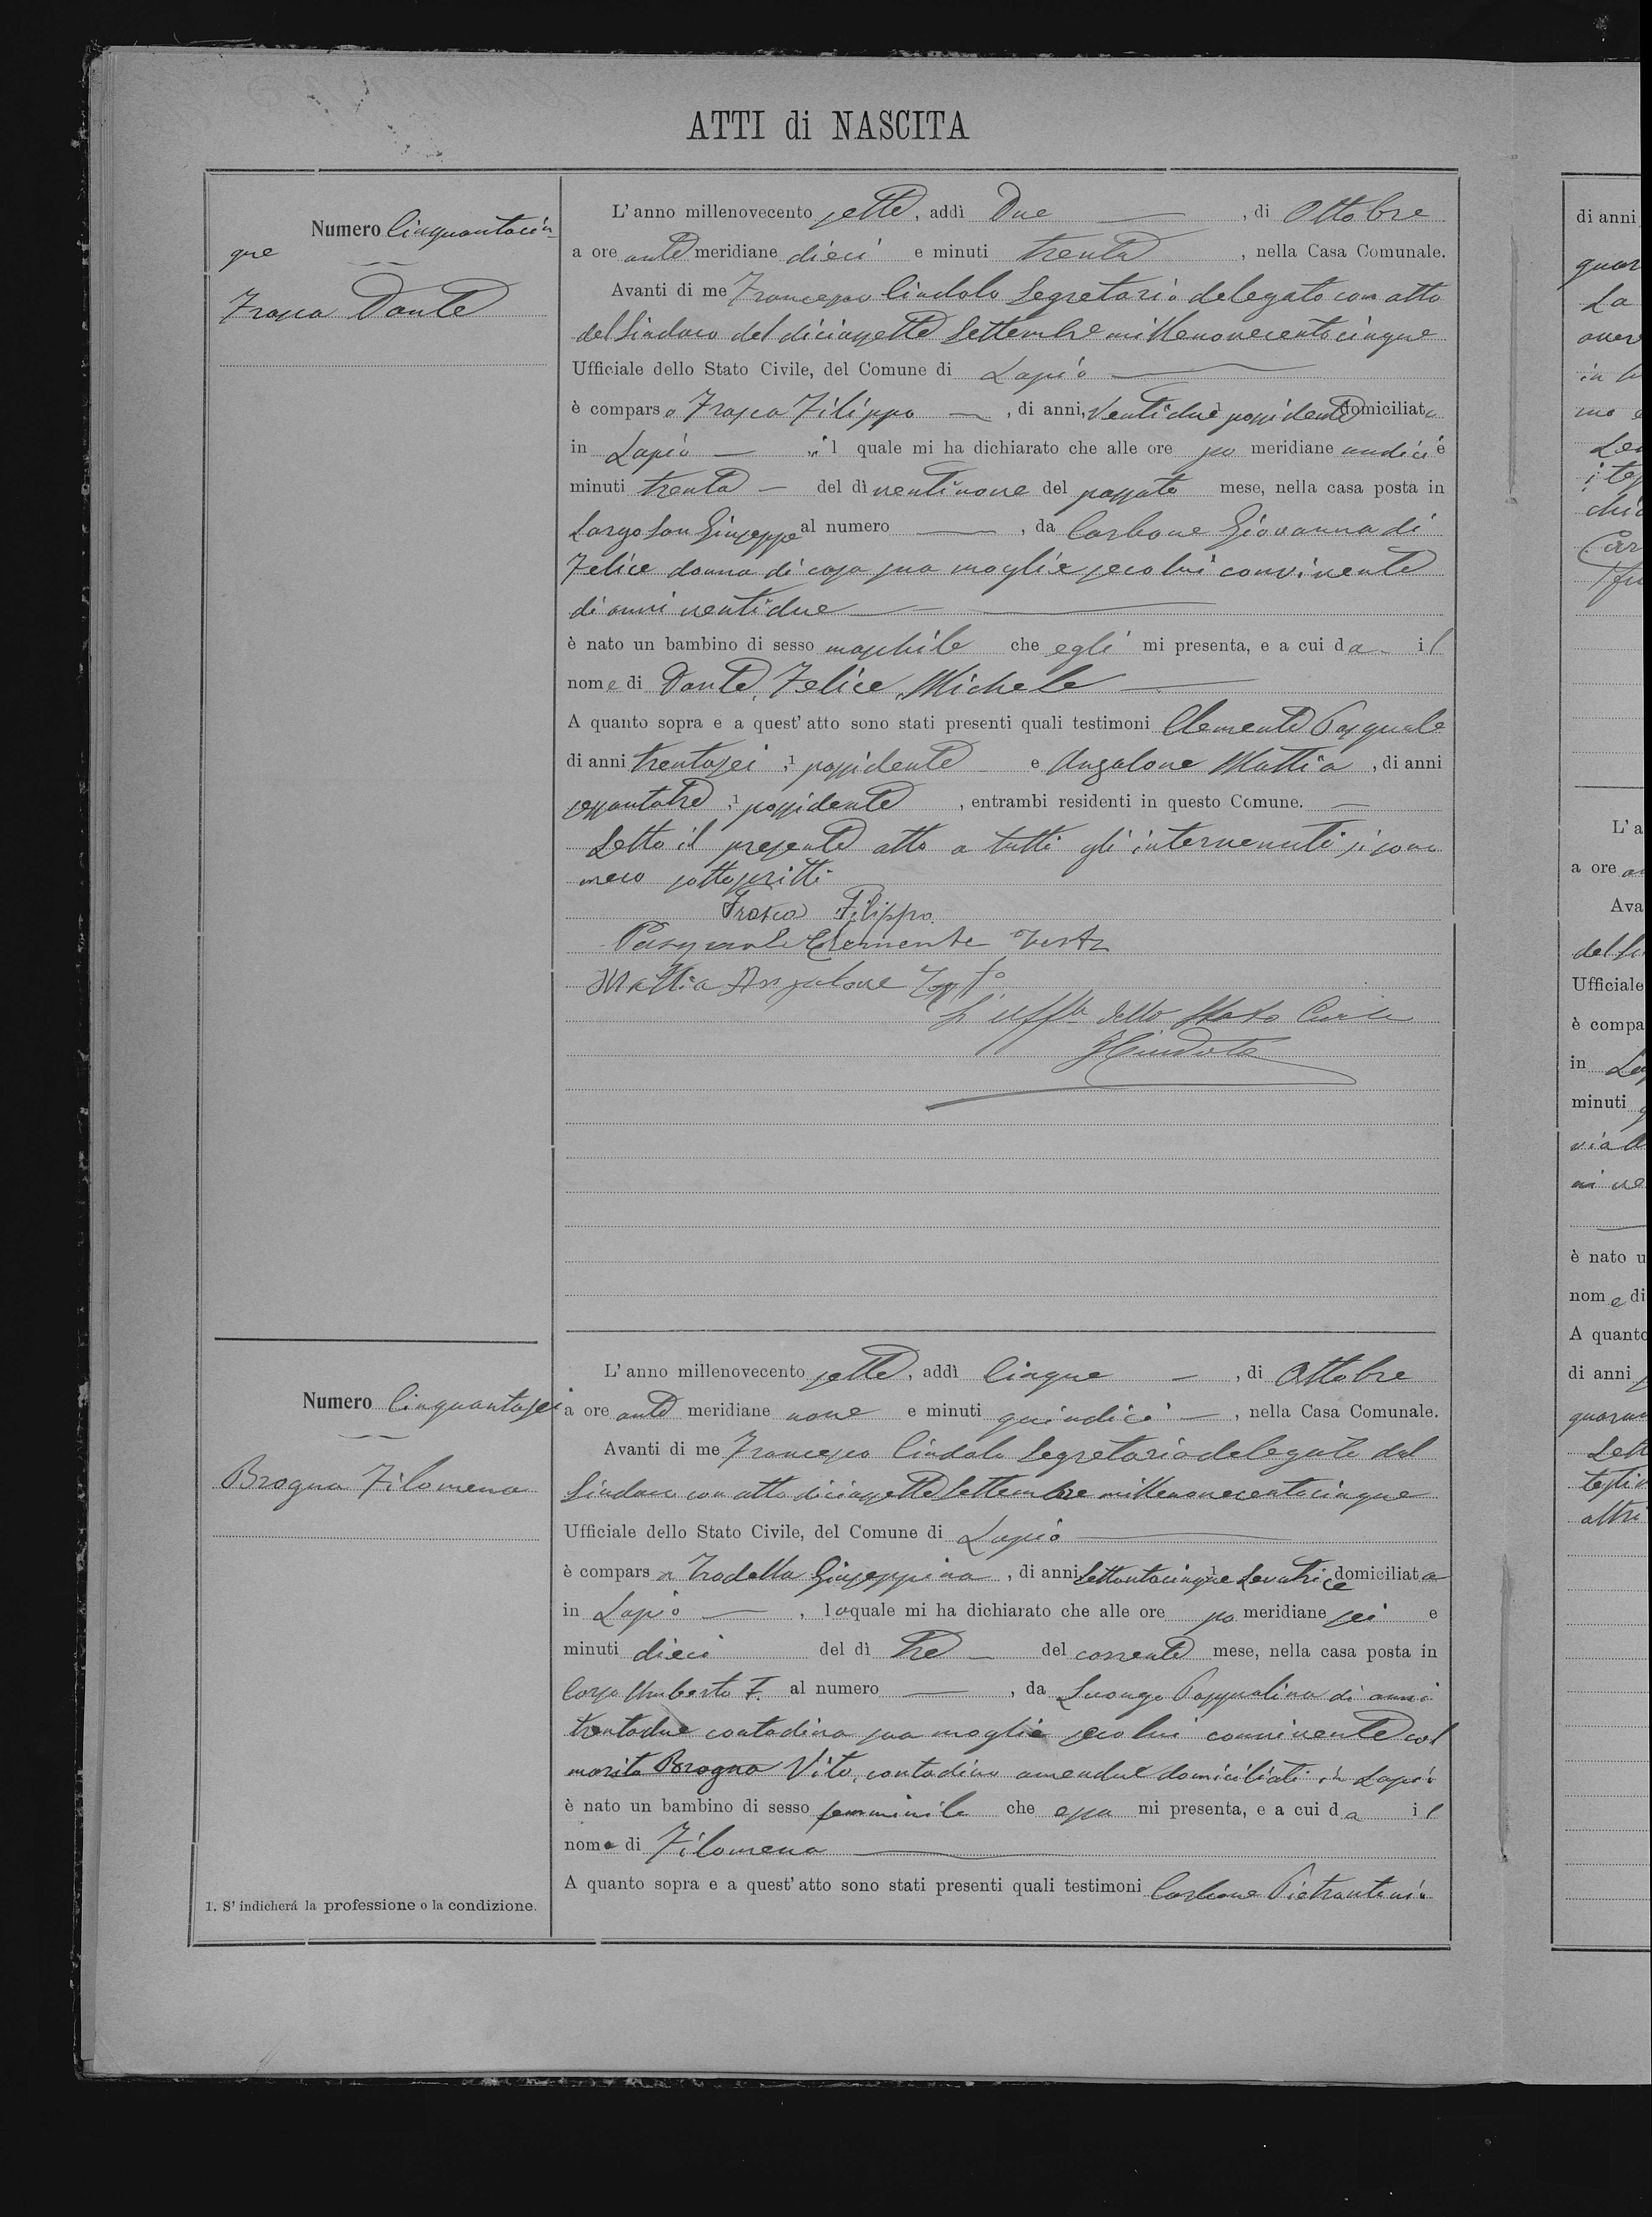 ATTI di NASCITA
Numero Cinquantacin-
que
Frasca Dante
L'anno millenovecento sette, addì Due, di Ottobre
a ore ante meridiane dieci e minuti trenta, nella Casa Comunale.
Avanti di me Francesco Cindolo Segretario delegato con atto
del Sindaco del diciassette Settembre millenovecentocinque
Ufficiale dello Stato Civile, del Comune di Lapio
è comparso Frasca Filippo, di anni, ventidue possidente domiciliato
in Lapio il quale mi ha dichiarato che alle ore po meridiane undici e
minuti trenta del dì ventinove del passato mese, nella casa posta in
Largo San Giuseppe al numero , da Carbone Giovanna di
Felice donna di casa sua moglie seco lui convivente
di anni ventidue
è nato un bambino di sesso maschile che egli mi presenta, e a cui da il
nome di Dante, Felice, Michele
A quanto sopra e a quest'atto sono stati presenti quali testimoni Clemente Pasquale
di anni trentasei, possidente e Angalone Mattia, di anni
sessantatre, possidente, entrambi residenti in questo Comune.
Letto il presente atto a tutti gli intervenuti si sono
meco sottoscritti
Frasca Filippo
Pasquale Clemente
Mattia Angalone
L'Uff. dello Stato Civile
FCindolo
Numero Cinquantasei
Brogna Filomena
L'anno millenovecento sette, addì Cinque, di Ottobre
a ore ante meridiane nove e minuti quindici, nella Casa Comunale.
Avanti di me Francesco Cindolo Segretario delegato dal
Sindaco con atto diciassette Settembre millenovecentocinque
Ufficiale dello Stato Civile, del Comune di Lapio
è comparsa Giuseppina, di anni Settantacinque Levatrice domiciliata
in Lapio, la quale mi ha dichiarato che alle ore po meridiane sei e
minuti dieci del dì tre del corrente mese, nella casa posta in
Corso Umberto I. al numero , da Luongo Pasqualina di anni
trentadue contadina sua moglie seco lui convivente col
marito Brogna Vito, contadino amendue domiciliati in Lapio
è nato un bambino di sesso femminile che essa mi presenta, e a cui da il
nome di Filomena
A quanto sopra e a quest'atto sono stati presenti quali testimoni Carbone Pietrantonio
1. S'indicherá la professione o la condizione.
di anni
L'a
a ore
Ava
Ufficiale
è compa
in
minuti
è nato u
nome di
A quanto
di anni